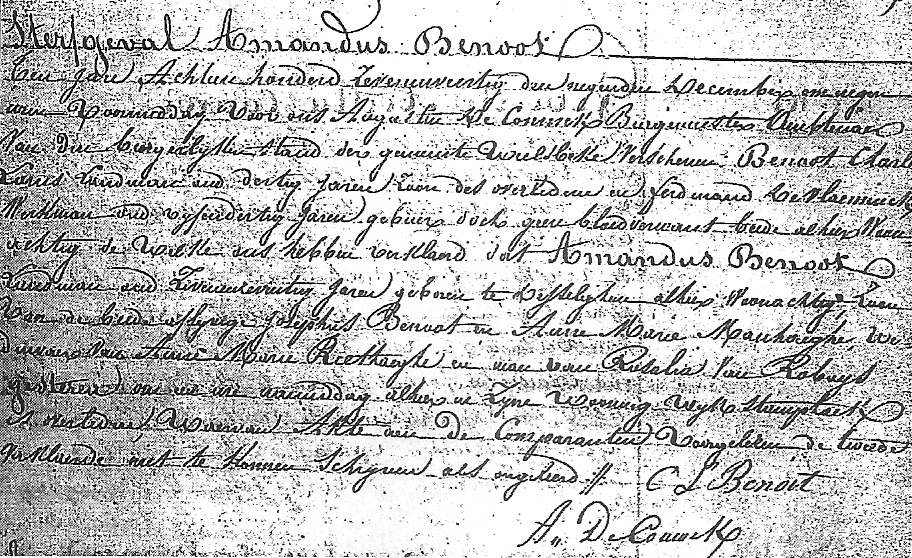 Sterfgeval Amandus Benoot
Een jare Achtien honderd Zevenenveertig den negenden December om negen
uren Voormiddag Voor ons Augustin De Coninck Burgemeester Ambtenaar
Van den burgerlyken stand der gemeente Wielsbeke Verschenen Benoot Charles
Louis Landman oud dertig jaren Zoon des overledene en ferdinand De Vlaeminck
Werkman oud vyfendertig jaren gebuer doch geene bloedverwant beide alhier Woon
achtig de Welke ons hebben verklaerd dat Amandus Benoot
Landman oud jaren geboren te alhier Woonachtig Zoon
Van de beide Josephus Benoot en Anne Marie We
duwaer Van Anne Marie en man van Rosalia Van Robays
gisteren om uren namiddag alhier in Zyne Wooning Wyk
is overleden Waervan Akte aen De Comparanten Voorgelezen de tweede
verklaerde niet te konnen Schryven als ongeleerd //. C L Benoit
A,, De Coninck